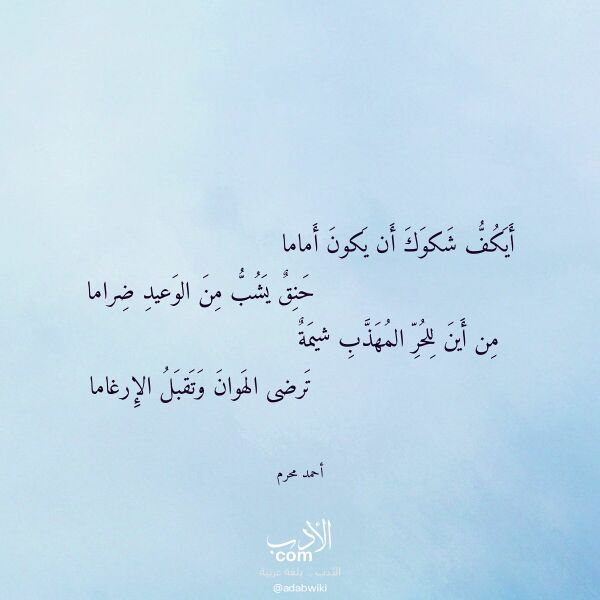 أَيَكُفُّ شَكوَكَ أَن يَكونَ أَماما
حَنِقٌ يَشُبُّ مِنَ الوَعيدِ ضِراما
مِن أَينَ لِلحُرِّ المُهَذَّبِ شيمَةٌ
تَرضى الهَوانَ وَتَقبَلُ الإِرغاما
أحمد محرم
الأدب
com
الأدب .. بلغة عربية
@adabwiki